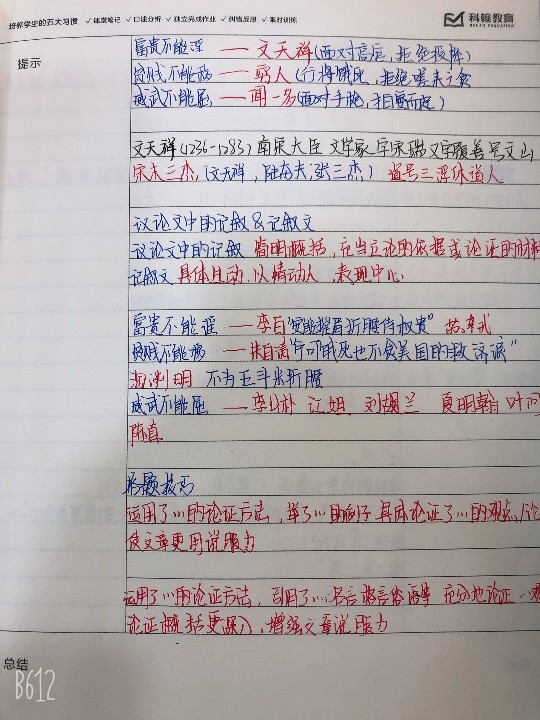 培养学生的五大习惯 ✓课堂笔记 □口述分析 ✓独立完成作业 ✓纠错反思 ✓限时训练
科翰教育
提示
富贵不能淫 —— 文天祥(面对高官,拒绝投降)
贫贱不能移 —— 穷人(行将饿死,拒绝嗟来之食)
威武不能屈 —— 闻一多(面对手枪,
文天祥(1236-1283)南宋大臣 文学家 字宋瑞又字履善号文山
宋末三杰(文天祥,陆秀夫,张三杰) 道号三浮休道人
议论文中的记叙&记叙文
议论文中的记叙 简明概括,充当立论的依据或论证的材料
记叙文 具体生动,以情动人,表现中心
富贵不能淫 —— 李白"安能摧眉折腰侍权贵"
贫贱不能移 —— 朱自清"宁可饿死也不食美国的救济粮"
陶渊明 不为五斗米折腰
威武不能屈 —— 李公朴 江姐 刘胡兰 夏明翰 叶问
陈真
答题技巧
运用了…的论证方法,举了…的例子 具体论证了…的观点/论
使文章更用说服力
运用了…的论证方法,引用了…名言 谚语俗语等 充分地论证…观
论证概括更深入,增强文章说服力
总结
B612